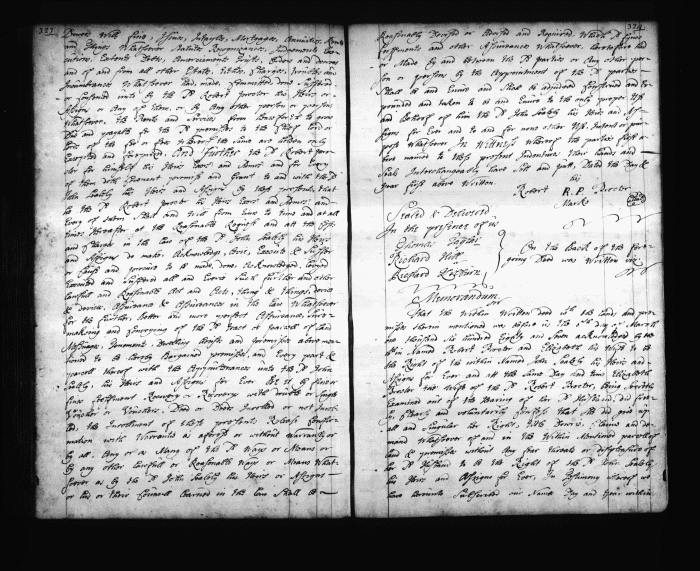 323
Dower Will
and things Whatsoever Statutes Recognizances Judgements Exe-
cutions, Extents Debts, Amerciaments
and of and from all other Estate, Titles, Charges, Troubles and
Incumbrances Whatsoever had, made, Committed done Suffered
or Consented unto by the sd Robert Procter his Heirs or
Assigns or Any of them, or, by Any other person or persons
Whatsoever. The Rents and Services from henceforth to grow
Due and payable for the sd premises to the Chief Lord or
Lords of the fee or fees Whereof the same are holden only
Excepted and foreprized, And further the sd Robert Proc-
ter for himself his Heirs Exers and Admrs and for Every
of them doth Covenant promise and Grant to and with the sd
John his Heirs and Assigns By these presents, that
he the sd Robert Procter his Heirs Exers and Admrs and
Every of them Shall and Will from time to time and at all
times hereafter at the Reasonable Request and att the Costs
and Charges in the law of the sd John his Heirs
and Assigns do make, Acknowledge, Execute & Suffer
or Cause and procure to be made, done, Acknowledged,
Executed and Suffered all and Every such further and other
lawfull and Reasonable Act and Acts, thing & things, device
& devices, Assurance & Assurances in the law Whatsoever
for the further, better and more perfect Assurance, Sure
making and Conveying of the sd tract or parcell of land
Messuage, Tenement, Dwelling house and premises above men-
tioned to be hereby Bargained premises, and Every part &
parcell thereof with the Appurtenances unto the sd John
his Heirs and Assigns for Ever be it by fine or
fines feoffment Recovery or Recoverys with double or Single
Voucher or Vouchers, Deed or Deeds Inrolled or not Inrol-
led, the Inrollment of these presents Release Confir-
mation with Warranty as aforesd or without Warranty or
by all, Any or as Many of the sd Ways or Means or
By any other lawfull or Reasonable Ways or Means What-
soever as By the sd John his Heirs or Assigns
or his or their Councell learned in the law Shall be
324
Reasonably Devised or Advised and Required Which sd fines
feoffments and other Assurances Whatsoever, heretofore had
or Made By and between the sd parties or Any other per-
son or persons by the Appointment of the sd parties
Shall be and Enure and Shall be adjudged Expounded and
and taken to be and Enure to the only proper Use
and behoof of him the sd John his Heirs and As-
signs for Ever and to and for none other Use, Intent or pur-
pose Whatsoever In Witness Whereof the parties first a-
bove named to these present Indenture their hands and
Seals Interchangeably have Sett and putt, Dated the Day &
Year first above Written
his
Robert R.P. Procter
Marke
Sealed & Delivered
In the presence of us
Thomas
Richard Hill
Richard
On the back of the fore-
going Deed was Written viz
Memorandum
That the Within Written deed of the Land, and pre-
mises therein mentioned was the day of March
one thousand Six hundred Eighty and Seven acknowledged by the
within Named Robert Procter & Elizabeth his Wife to be
the Right of the within Named John his Heirs and
Assigns for Ever and att the Same Day and time Elizabeth
Procter the Wife of the sd Robert Procter, Being Secretly
Examined out of the Hearing of her sd Husband, did free-
ly, Clearly and voluntarily Confess that she did give up
all and Singular her Right, title Dower, Claime and de-
mand Whatsoever of and in the Within Mentioned parcell of
land & premises without Any fear threats or displeasure of
her sd Husband to be the Right of the sd John
his Heirs and Assigns for Ever. In Testimony whereof we
have hereunto Subscribed our Names Day and Year within